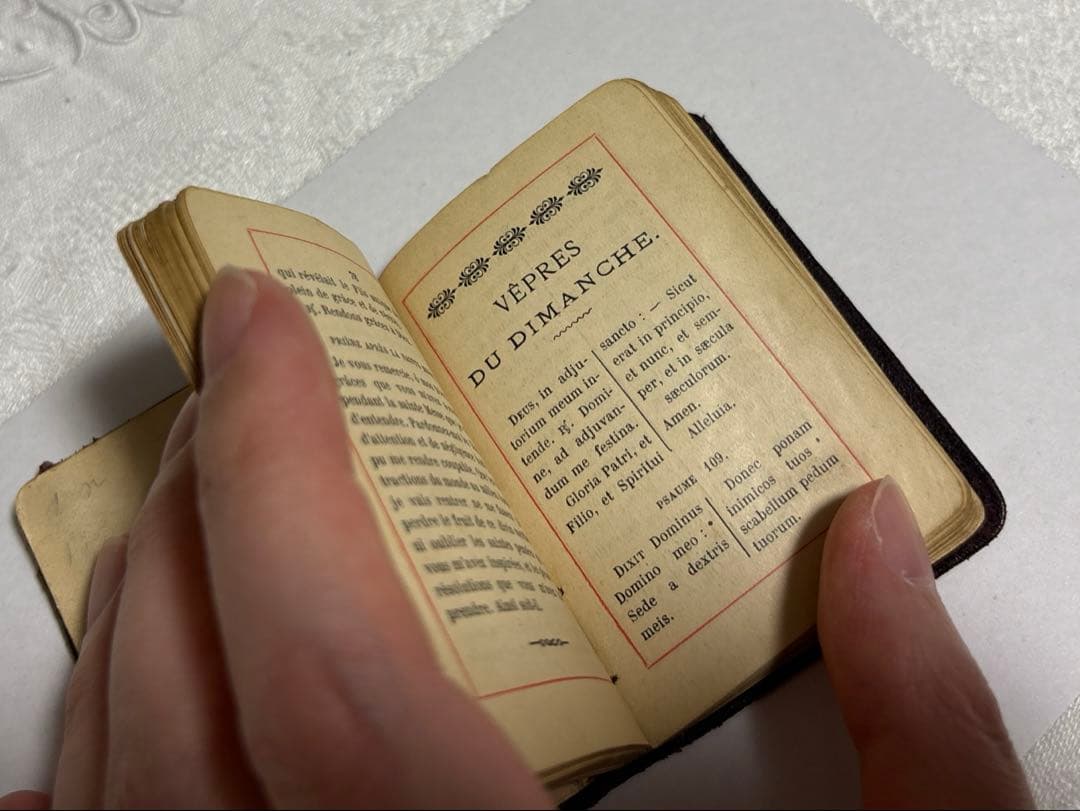 qui révélait le Fils
plein de grâce et de
℟. Rendons grâces à
PRIÈRE APRÈS LA SAINTE
Je vous remercie, ô mon
grâces que vous m'avez
pendant la sainte Messe, que
d'entendre. Pardonnez-moi
d'attention et de négligence,
pu me rendre coupable,
tractions du monde
je vais rentrer ne me
perdre le fruit de ce
ni oublier les saintes
vous m'avez inspirées, et les
résolutions que vous m'avez
prendre. Ainsi soit-il.
VÊPRES
DU DIMANCHE.
DEUS, in adju-
torium meum in-
tende. ℟. Domi-
ne, ad adjuvan-
dum me festina.
Gloria Patri, et
Filio, et Spiritui
sancto : — Sicut
erat in principio,
et nunc, et sem-
per, et in sæcula
sæculorum.
Amen.
Alleluia.
PSAUME 109.
DIXIT Dominus
Domino meo : *
Sede a dextris
meis.
Donec ponam
inimicos tuos,
scabellum pedum
tuorum.